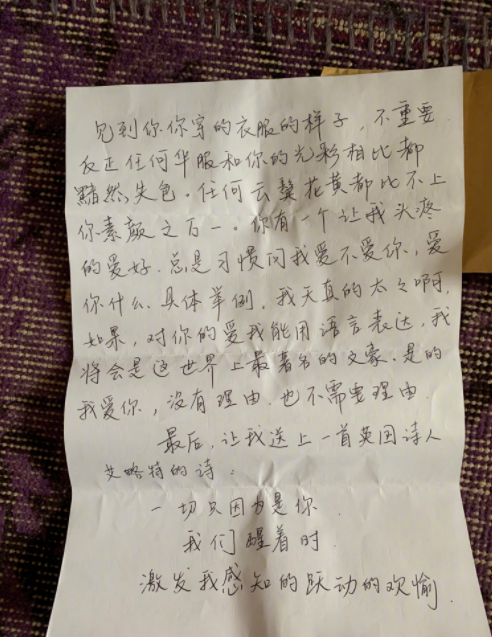 见到你你穿的衣服的样子，不重要
反正任何华服和你的光彩相比都
黯然失色。任何云鬓花黄都比不上
你素颜之万一。你有一个让我头疼
的爱好．总是习惯问我爱不爱你，爱
你什么．具体举例．我天真的太太啊，
如果，对你的爱我能用语言表达，我
将会是这世界上最著名的文豪．是的
我爱你，没有理由．也不需要理由．
最后，让我送上一首英国诗人
艾略特的诗：
一切只因为是你．
我们醒着时．
激发我感知的跃动的欢愉．